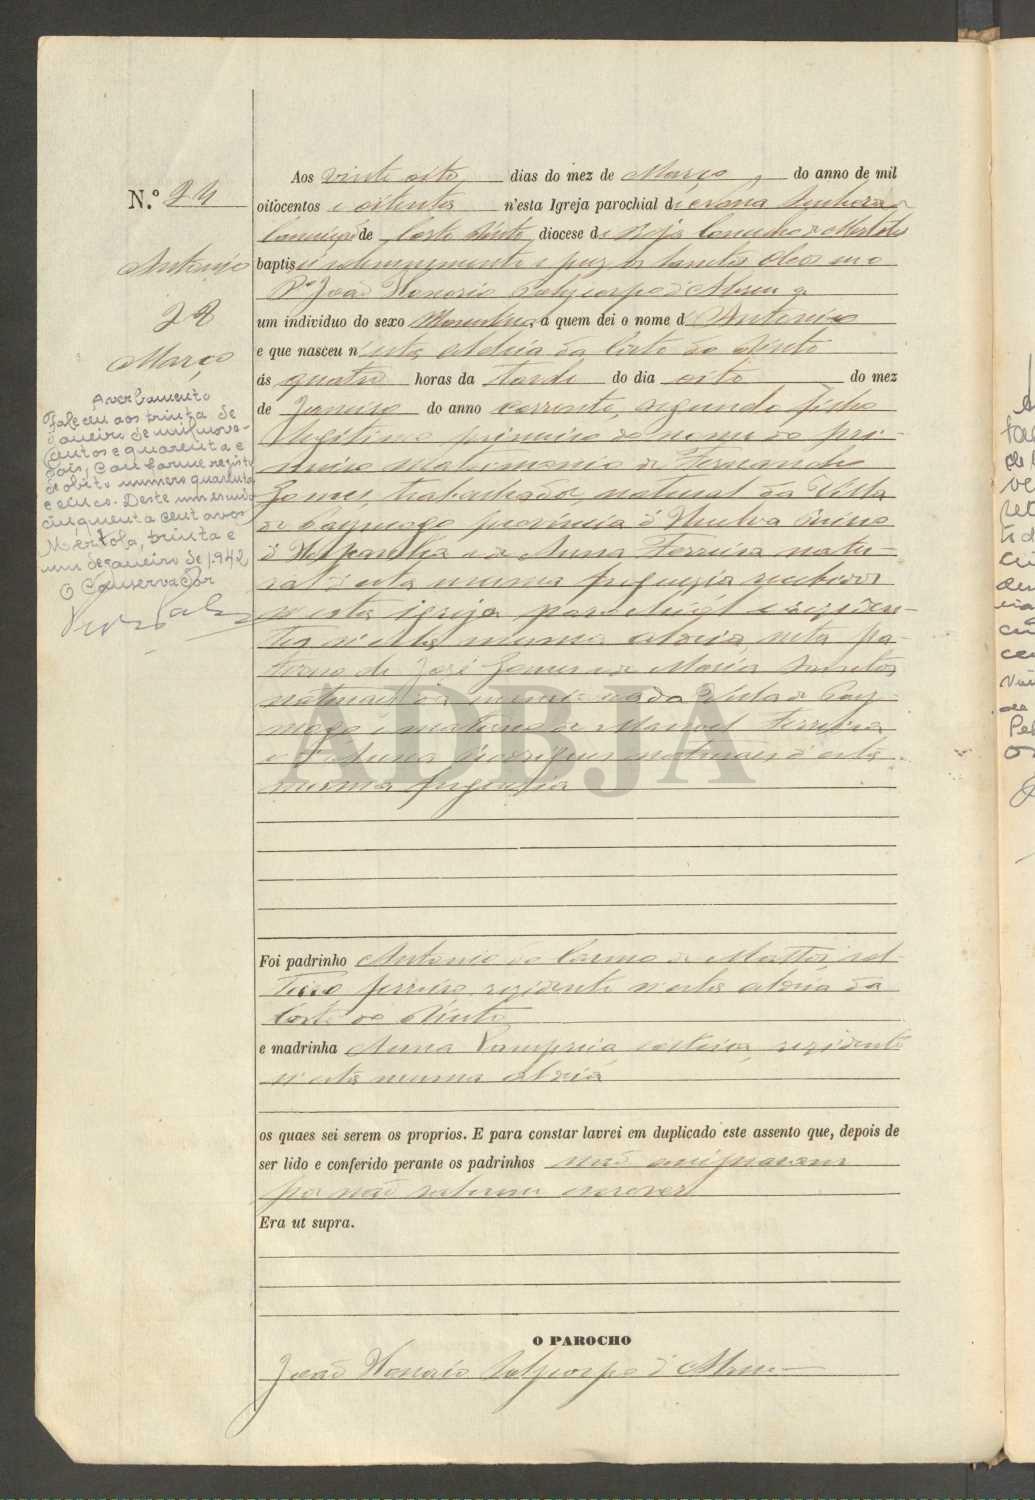 N.º 24
Antonio
28
Março
Averbamento
Faleceu aos trinta de
Janeiro de mil nove-
centos e quarenta e
dois, conforme registo
de obito numero quarenta
e cinco. Deste um escudo
cinquenta centavos
Mertola, trinta e
um de janeiro de 1.942
O Conservador
Aos vinte oito dias do mez de Março, do anno de mil
oitocentos e oitenta n'esta Igreja parochial de Nossa Senhora da
Conceição de Corte do Pinto, diocese de Beja Concelho de Mertola
baptisei solemnemente e puz os santos oleos eu o
P.e João Honorio Polycarpo d'Abreu a
um individuo do sexo Masculino, a quem dei o nome de Antonio
e que nasceu n'esta Aldeia da Corte do Pinto
ás quatro horas da tarde do dia oito do mez
de Janeiro do anno corrente, segundo filho
legitimo primeiro do nome do pri-
meiro matrimonio de Fernando
Gomes, trabalhador, natural da Villa
de provincia d'Huelva Reino
d'Hespanha e de Anna Ferreira natu-
ral d'esta mesma freguezia recebidos
n'esta igreja parochial e residen-
tes n'esta mesma aldeia, neto pa-
terno de José Gomes e de Maria Santos
naturaes da mencionada Villa de
e materno de Manoel Ferreira
e d'Anna Rodrigues naturaes d'esta
mesma freguezia
Foi padrinho Antonio do Carmo de Mattos sol-
teiro ferreiro residente n'esta aldeia da
Corte do Pinto
e madrinha Anna residente
n'esta mesma aldeia
os quaes sei serem os proprios. E para constar lavrei em duplicado este assento que, depois de
ser lido e conferido perante os padrinhos não assignaram
por não saberem escrever
Era ut supra.
O PAROCHO
João Honorio Polycarpo d'Abreu
ADBJA